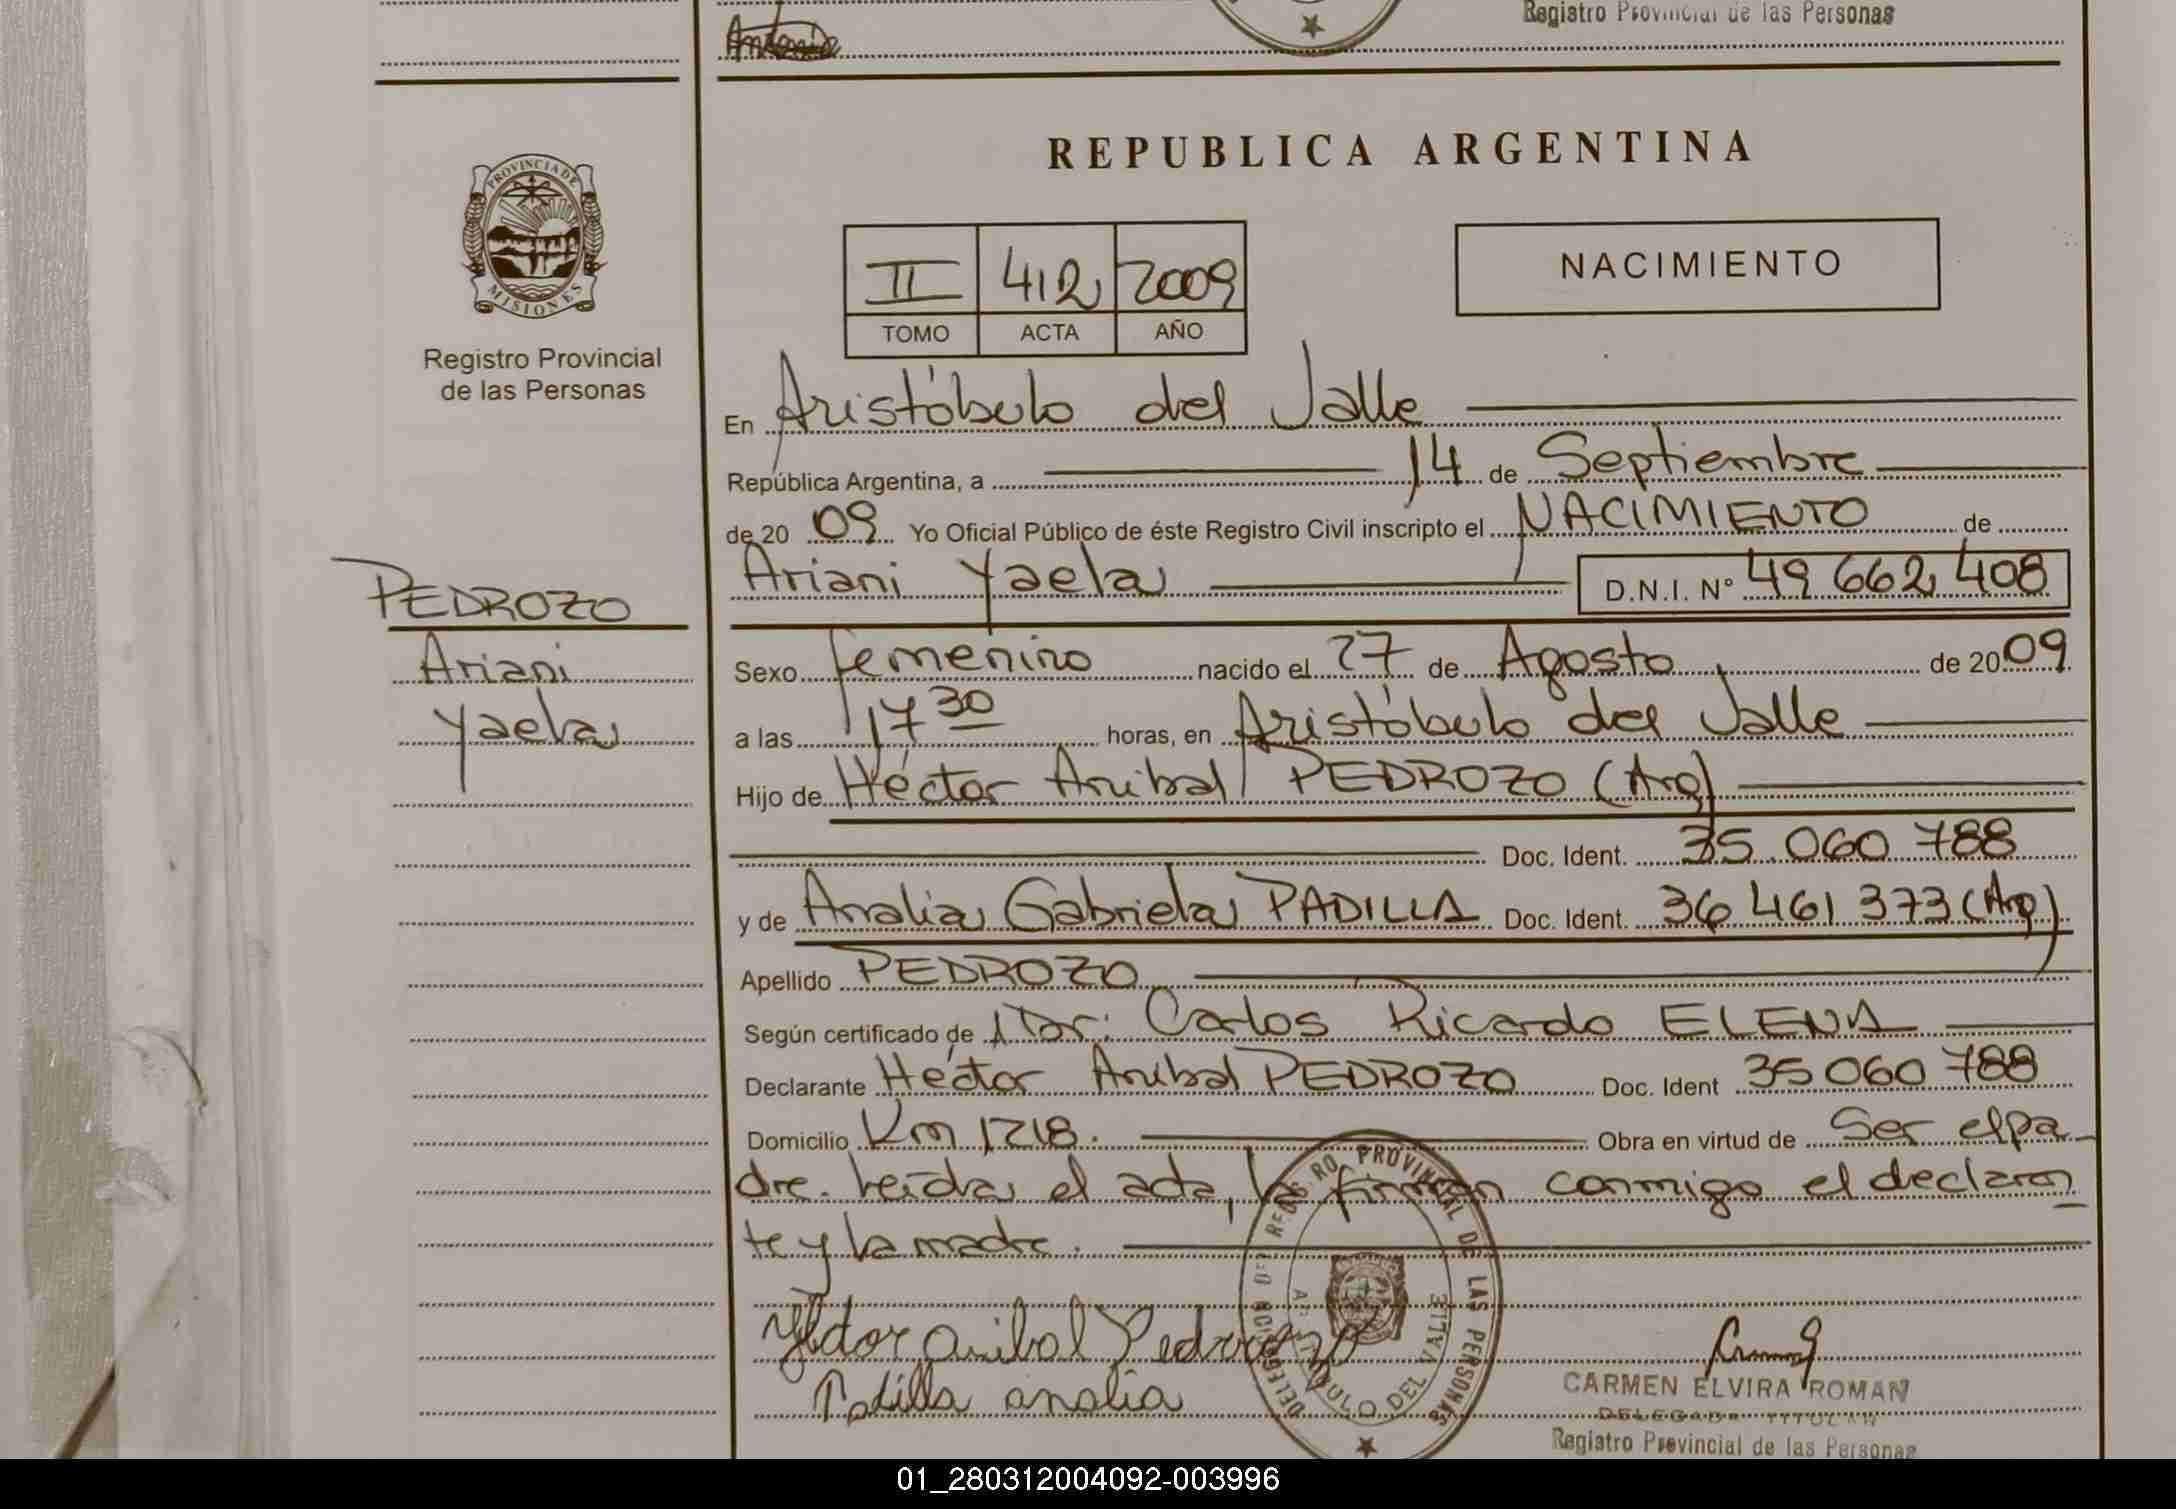 Registro Provincial de las Personas
Antonio
PROVINCIA DE
MISIONES
Registro Provincial
de las Personas
REPUBLICA ARGENTINA
II 412 2009
TOMO ACTA AÑO
NACIMIENTO
En Aristóbulo del Valle
República Argentina, a 14 de Septiembre
de 20 09 Yo Oficial Público de éste Registro Civil inscripto el NACIMIENTO de
Ariani Yaela D.N.I. Nº 49 662 408
PEDROZO
Ariani
Yaela
Sexo femenino nacido el 27 de Agosto de 20 09
a las 17 30 horas, en Aristóbulo del Valle
Hijo de Héctor Anibal PEDROZO (Arg)
Doc. Ident. 35.060 788
y de Analia Gabriela PADILLA Doc. Ident. 36 461 373 (Arg)
Apellido PEDROZO
Según certificado de Dr. Carlos Ricardo ELENA
Declarante Héctor Anibal PEDROZO Doc. Ident 35 060 788
Domicilio Km 1218. Obra en virtud de Ser el pa
dre. Leída el acta, la firman conmigo el declaran
te y la madre.
Héctor anibal Pedrozo
Padilla analia
REGISTRO PROVINCIAL DE LAS PERSONAS
DEL VALLE
CARMEN ELVIRA ROMAN
DELEGADA TITULAR
Registro Provincial de las Personas
01_280312004092-003996